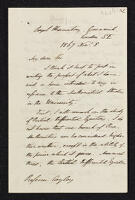 Royal Observatory Greenwich
London S.E.
1867 Nov. 8
My dear Sir
I think it best to put in
writing the purport of what I have
said, or have intended to say, in
reference to the Mathematical Studies
in the University.
First, I will remark on the study
of Partial Differential Equations. I do
not know that one branch of Pure
Mathematics can be considered higher
than another, except in the utility of
the power which it gives. Measured
thus, the Partial Differential Equations
Professor Cayley